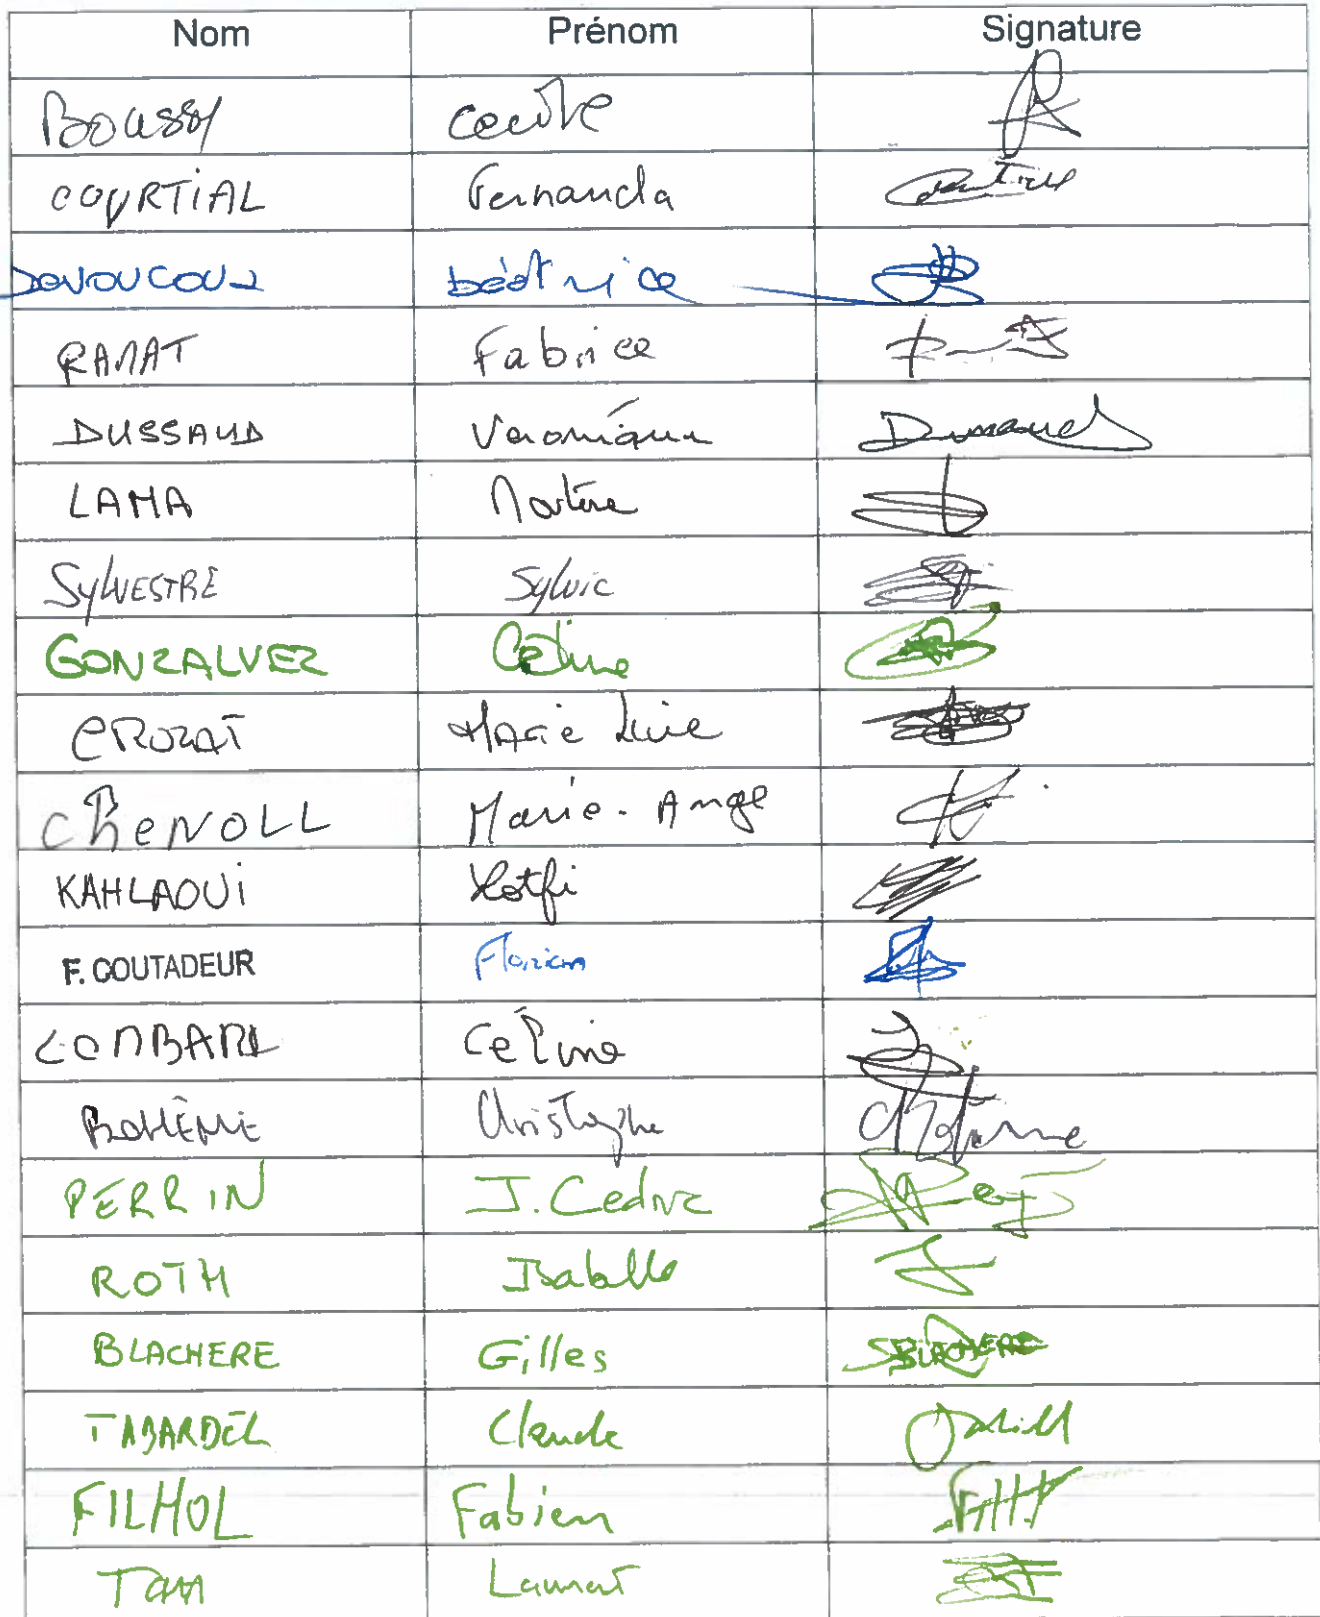 Nom Prénom Signature
Boussy Cecile
COURTIAL Fernanda
béatrice
RAMAT Fabrice
DUSSAUD Veronique Dussaud
LAMA Martine
SYLVESTRE Sylvie
GONZALVEZ Céline
CROZAT Marie Luce
CHENOLL Marie-Ange
KAHLAOUI Lotfi
F. COUTADEUR Florian
LOMBARD Céline
BOHÊME Christophe
PERRIN J. Cedric
ROTH Isabelle
BLACHERE Gilles BLACHERE
TABARDEL Claude
FILHOL Fabien
Laurent